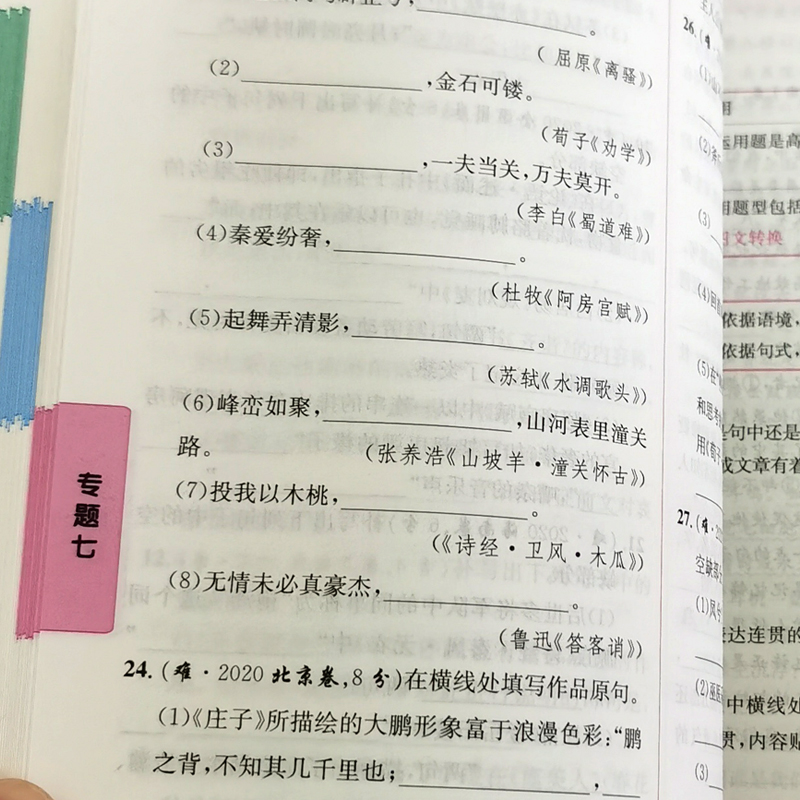 (屈原《离骚》)
(2)____________,金石可镂。
(荀子《劝学》)
(3)____________,一夫当关,万夫莫开。
(李白《蜀道难》)
(4)秦爱纷奢,____________。
(杜牧《阿房宫赋》)
(5)起舞弄清影,____________。
(苏轼《水调歌头》)
(6)峰峦如聚,____________,山河表里潼关
路。 (张养浩《山坡羊·潼关怀古》)
(7)投我以木桃,____________。
(《诗经·卫风·木瓜》)
(8)无情未必真豪杰,____________。
(鲁迅《答客诮》)
24.(难·2020 北京卷,8分)在横线处填写作品原句。
(1)《庄子》所描绘的大鹏形象富于浪漫色彩:“鹏
之背,不知其几千里也;____________,___
专题七
26.(难
(1)
(2)
(3)
(4)
(5)在
和思考
用《荀子
27.(难·20
空缺部
(1)凤
(2)
(3)
用
运用题是高
用题型包括
文转换
依据语境,
依据句式,
是句中还是
成文章有着
达连贯的
中横线处
贯,内容贴